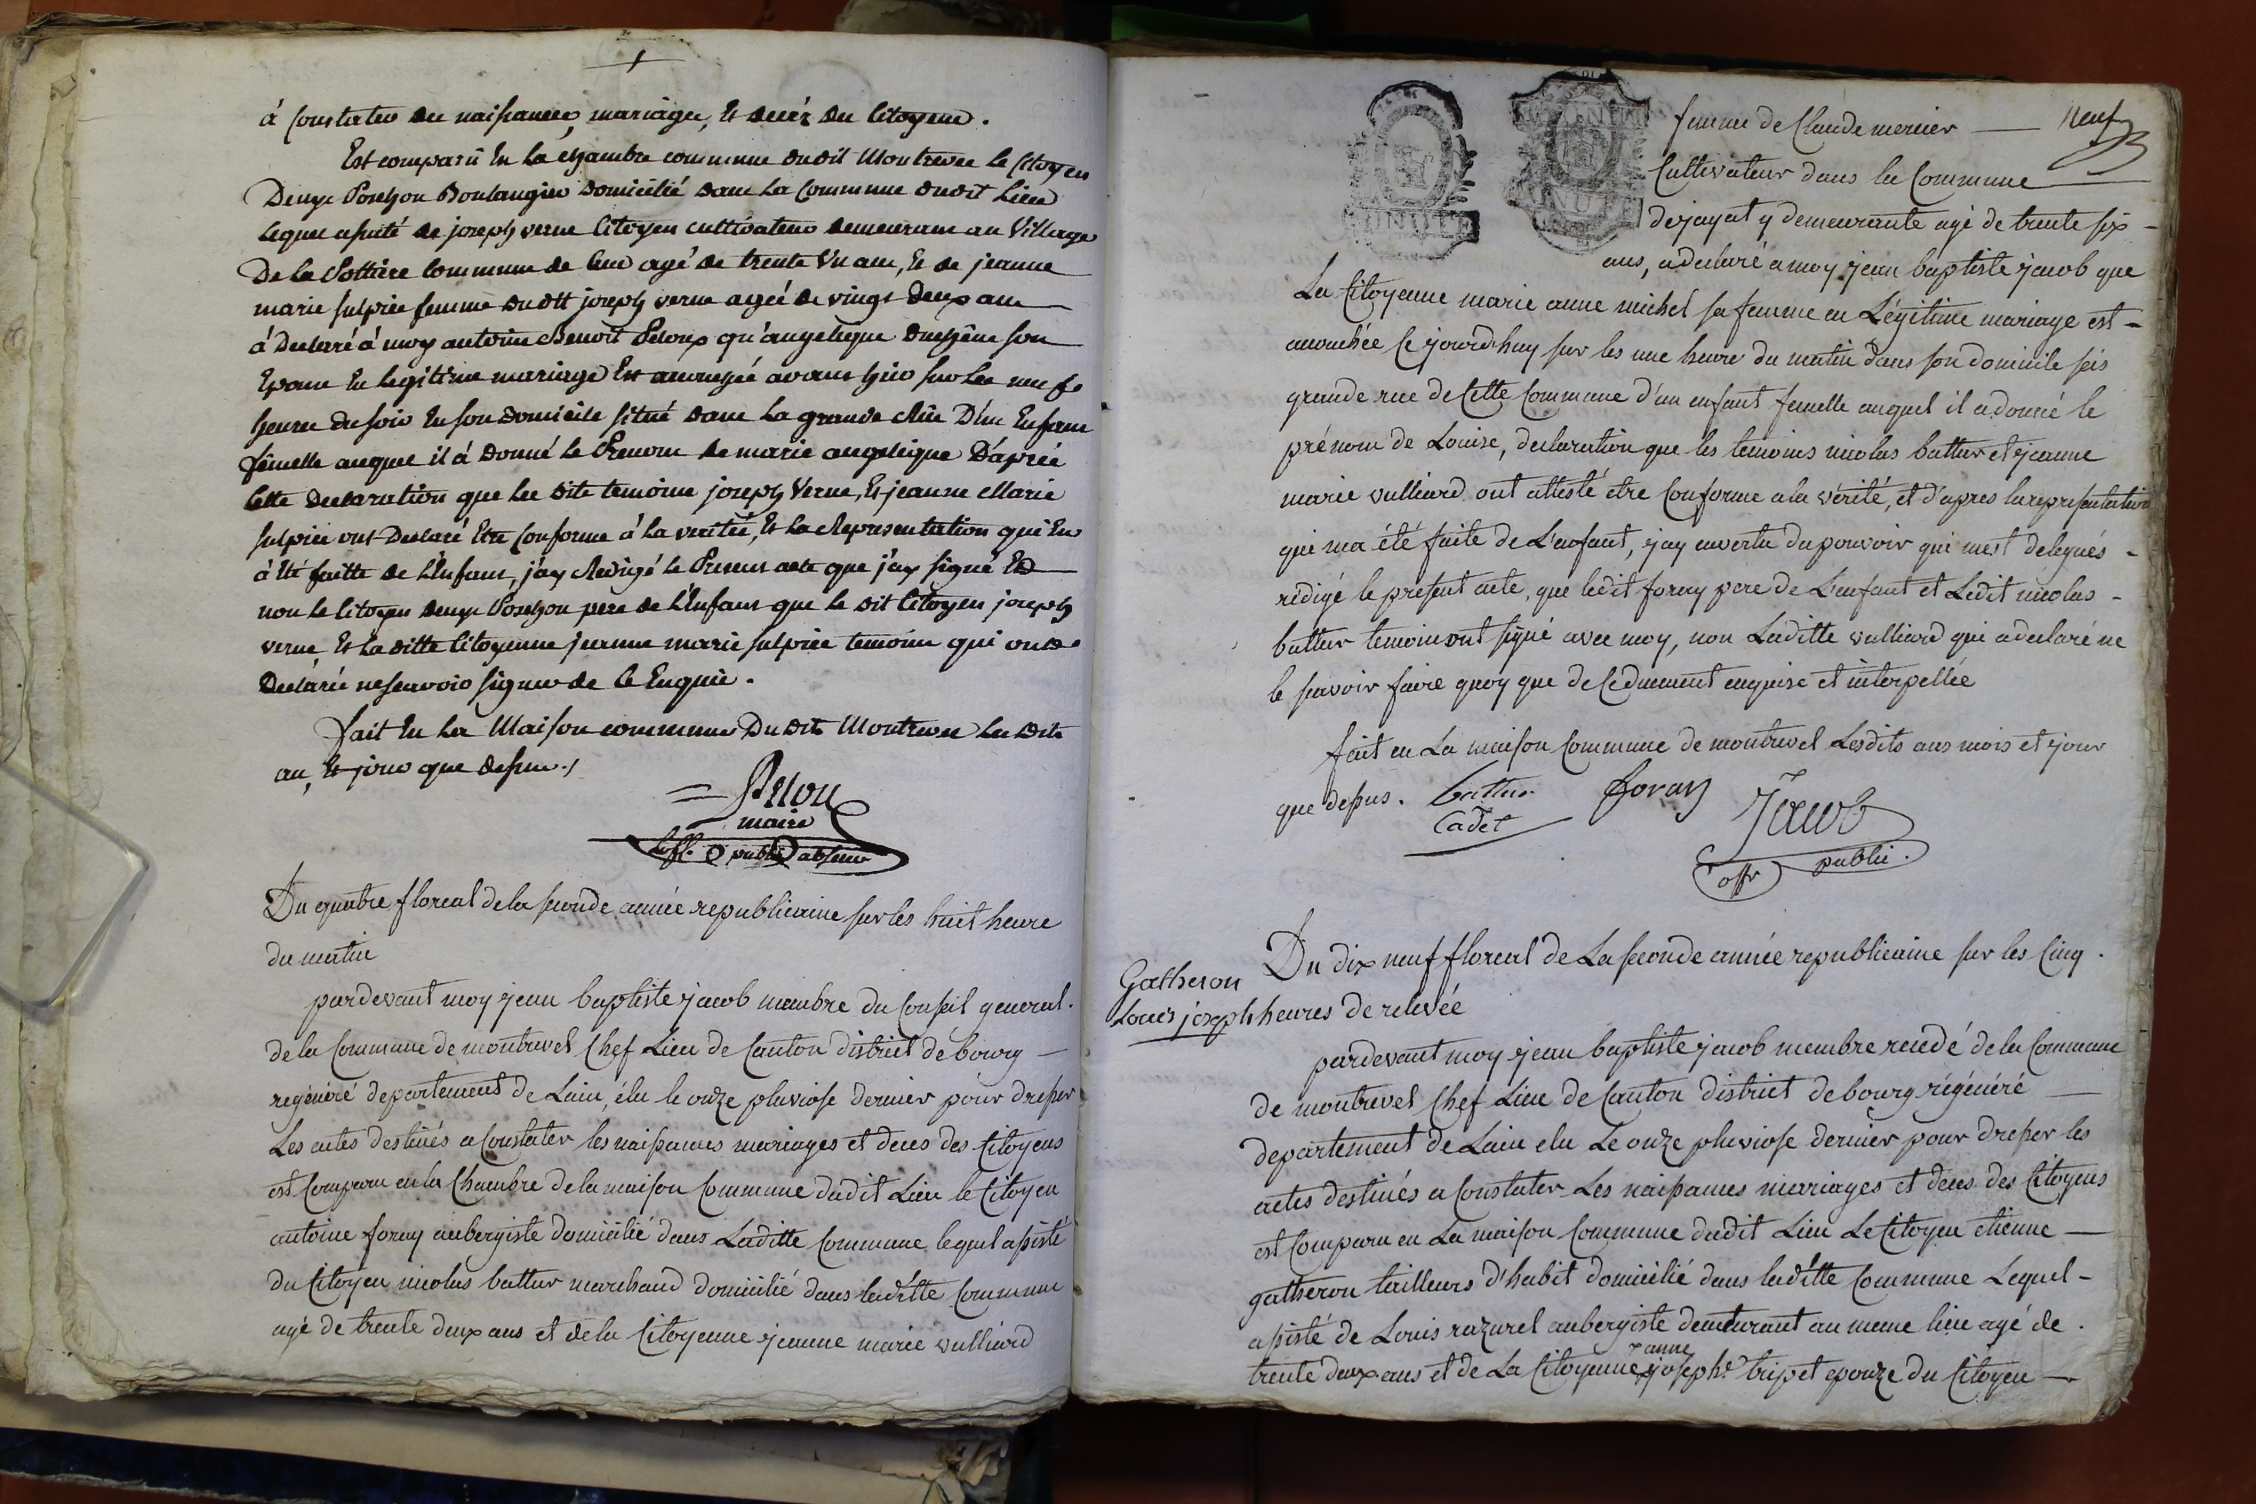 à constater les naissances, mariages, et décéz des Citoyens.
Est comparû En la chambre commune dudit Montrevel le Citoyen
Denys Pochon Boulanger domicilié dans la Commune dudit Lieu
Lequel assisté de joseph verne Citoyen cultivateur demeurant au Village
De la Pottière Commune de agé de trente Un ans, Et de jeanne
marie sulpice femme dudit joseph verne agée de vingt deux ans
à Declaré à moy antoine Benoit Peloux qu'angelique Duchêne son
Epouse En legitime mariage Est accouchée avant hier sur les neufs
heures du soir En son domicile situé dans la grande Rüe D'un Enfant
fémelle auquel il à donné le Prenom de marie angelique D'après
Cette declaration que les dits temoins joseph Verne, Et jeanne Marie
sulpice ont Declaré Etre Conforme à la veritée, Et la Representation qui En
à Eté faitte de L'Enfant, j'ay Redigé le Present acte que j'ay signé Et
non le Citoyen denys Pochon pere de L'Enfant que le dit Citoyen joseph
verne Et la ditte Citoyenne jeanne marie sulpice temoins qui onts
Declaré ne scavoir signer de ce Enquis.
fait En La Maison commune Du dit Montrevel les dits
an, Et jour que dessus./
Pelou
maire
L'off. public absent
Du quatre floreal de la seconde année republicaine sur les huit heure
du matin
pardevant moy jean baptiste jacob membre du Conseil general.
de la Commune de montrevel Chef Lieu de Canton district de bourg
regénéré departement de Lain, élu le onze pluviose dernier pour dresser
Les actes destinés a Constater les naissances mariages et deces des Citoyens
est Comparu en la Chambre de la maison Commune dudit Lieu le Citoyen
antoine foray aubergiste domicilié dans Laditte Commune lequel assisté
du Citoyen nicolas battur marchand domicilié dans laditte Commune
agé de trente deux ans et de la Citoyenne jeanne marie vulliard
femme de Claude mercier — neuf
Cultivateur dans la Commune
dejayat y demeurante agé de trente six
ans, a declaré a moy jean baptiste jacob que
La Citoyenne marie anne michel sa femme en Légitime mariage est
acouchée Ce jourd'huy sur les une heure du matin dans son domicile sis
grande rue de Cette Commune d'un enfant femelle auquel il a donné le
prénom de Louise, declaration que les temoins nicolas battur et jeanne
marie vulliard ont attesté etre Conforme a la vérité, et d'apres la representation
qui ma été faite de L'enfant, jay envertu du pouvoir qui mest delegués
rédigé le present acte, que ledit foray pere de L'enfant et Ledit nicolas
battur temoin ont signé avec moy, non Laditte vulliard qui a declaré ne
le savoir faire quoy que de Ce dument enquise et interpellée
fait en La maison Commune de montrevel Lesdits ans mois et jour
que dessus. battur foray Jacob
Cadet
offr public.
Du dix neuf floreal de La seconde année republicaine sur les Cinq
Gatheron
Louis joseph heures de relevée
pardevant moy jean baptiste jacob membre de la Commune
de montrevel Chef Lieu de Canton district de bourg régénéré
departement de Lain elu Le onze pluviose dernier pour dresser les
actes destinés a Constater Les naissances mariages et deces des Citoyens
est Comparu en La maison Commune dudit Lieu Le Citoyen etienne
gatheron tailleurs d'habit domicilié dans laditte Commune Lequel
assisté de Louis razurel aubergiste demeurant au meme lieu agé de
trente deux ans et de La Citoyenne janne josephe tripet epouze du Citoyen